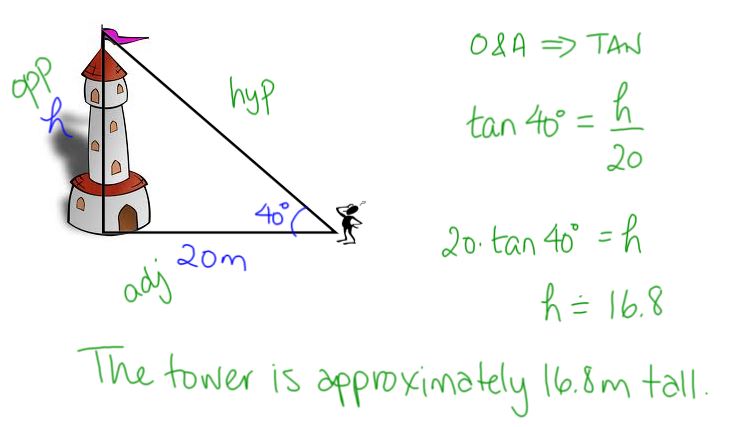 opp
h
hyp
40°
20m
adj
O&A ⇒ TAN
tan 40° = h/20
20. tan 40° = h
h ≐ 16.8
The tower is approximately 16.8m tall.